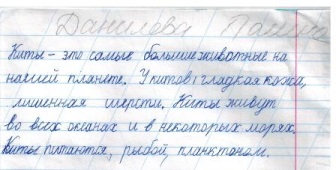 Данилова Полина
Киты – это самые большие животные на
нашей планете. У китов гладкая кожа,
лишенная шерсти. Киты живут
во всех океанах и в некоторых морях.
Киты питаются, рыбой, планктоном.